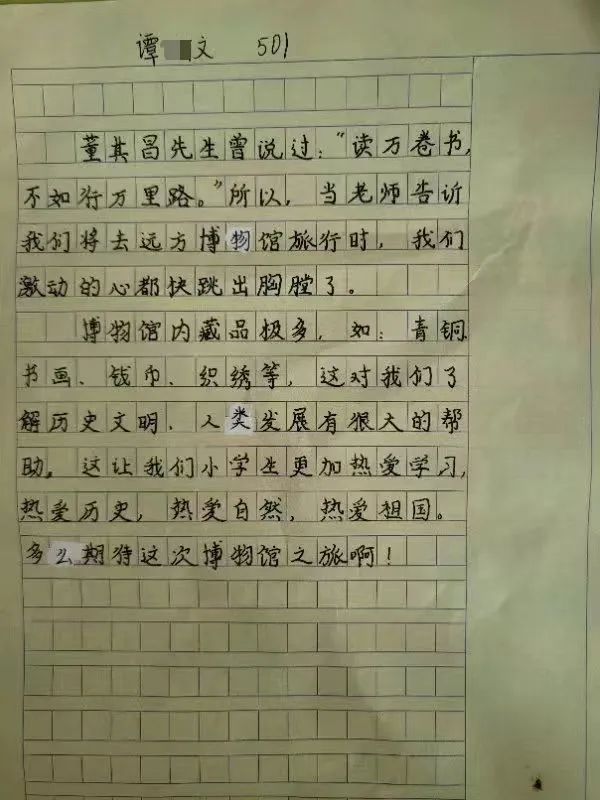 谭文 501
董其昌先生曾说过:“读万卷书,
不如行万里路。”所以,当老师告诉
我们将去远方博物馆旅行时,我们
激动的心都快跳出胸膛了。
博物馆内藏品极多,如:青铜
书画、钱币、织绣等,这对我们了
解历史文明、人类发展有很大的帮
助。这让我们小学生更加热爱学习,
热爱历史,热爱自然,热爱祖国。
多么期待这次博物馆之旅啊!